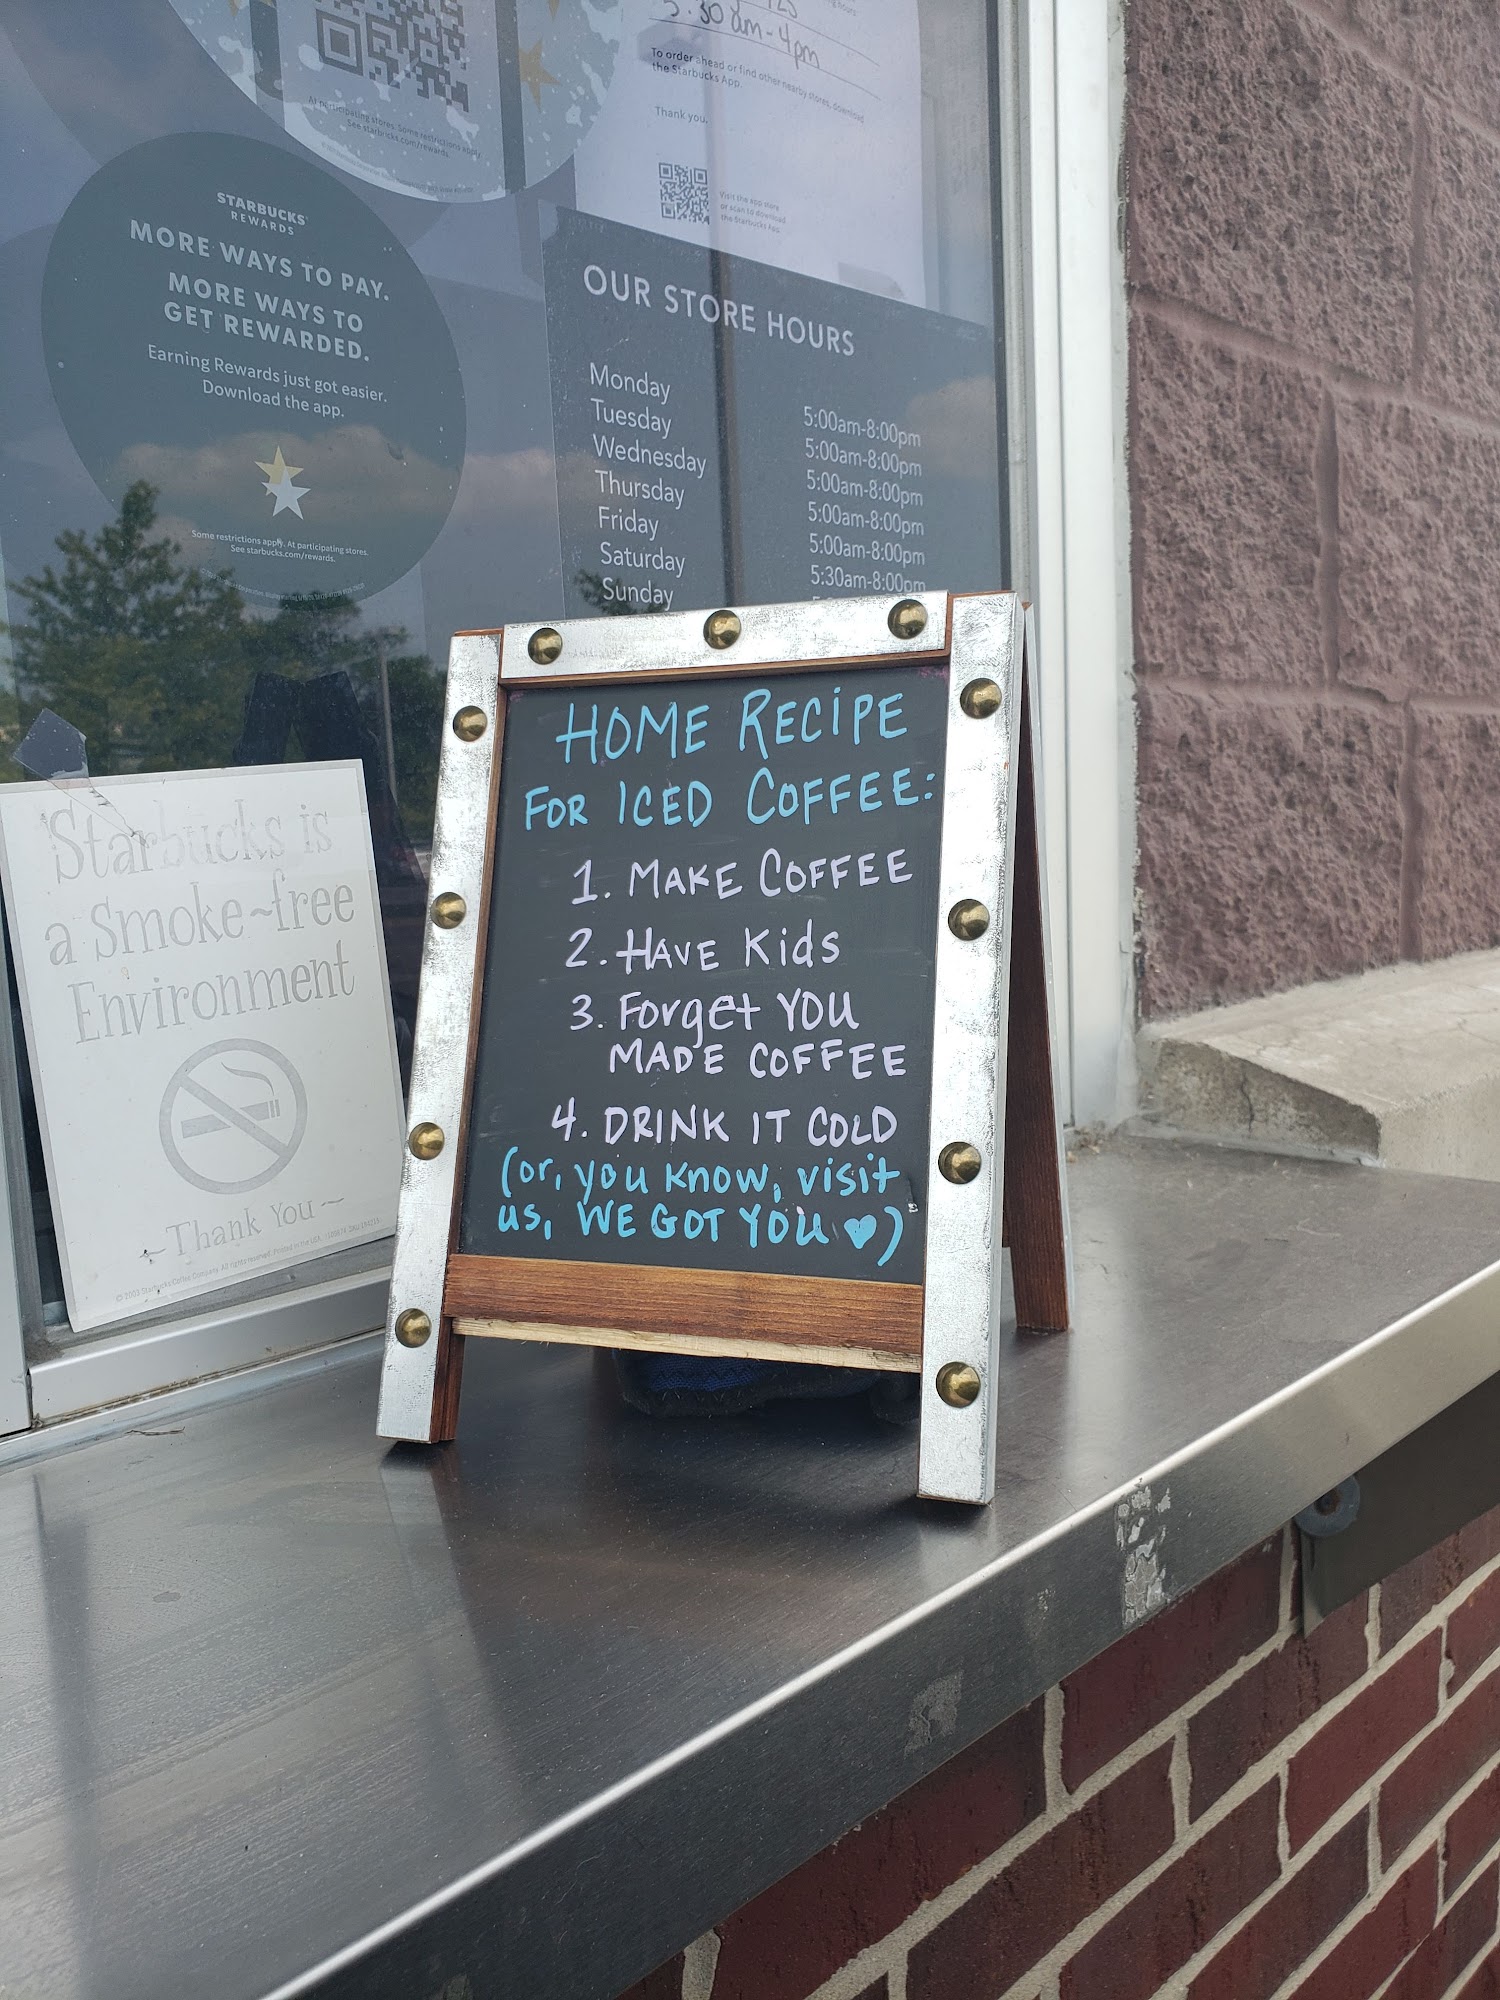 5:30am-4pm
To order ahead or find other nearby stores, download
the Starbucks App.
Thank you.
Visit the app store
or scan to download
the Starbucks App.
At participating stores. Some restrictions apply.
See starbucks.com/rewards.
STARBUCKS
REWARDS
MORE WAYS TO PAY.
MORE WAYS TO
GET REWARDED.
Earning Rewards just got easier.
Download the app.
Some restrictions apply. At participating stores.
See starbucks.com/rewards.
OUR STORE HOURS
Monday 5:00am-8:00pm
Tuesday 5:00am-8:00pm
Wednesday 5:00am-8:00pm
Thursday 5:00am-8:00pm
Friday 5:00am-8:00pm
Saturday 5:30am-8:00pm
Sunday
HOME RECIPE
FOR ICED COFFEE:
1. MAKE COFFEE
2. HAVE Kids
3. Forget YOU
MADE COFFEE
4. DRINK IT COLD
(or, you know, visit
us, WE GOT YOU ♥)
Starbucks is
a Smoke-free
Environment
~Thank You~
© 2003 Starbucks Coffee Company. All rights reserved. Printed in the USA.